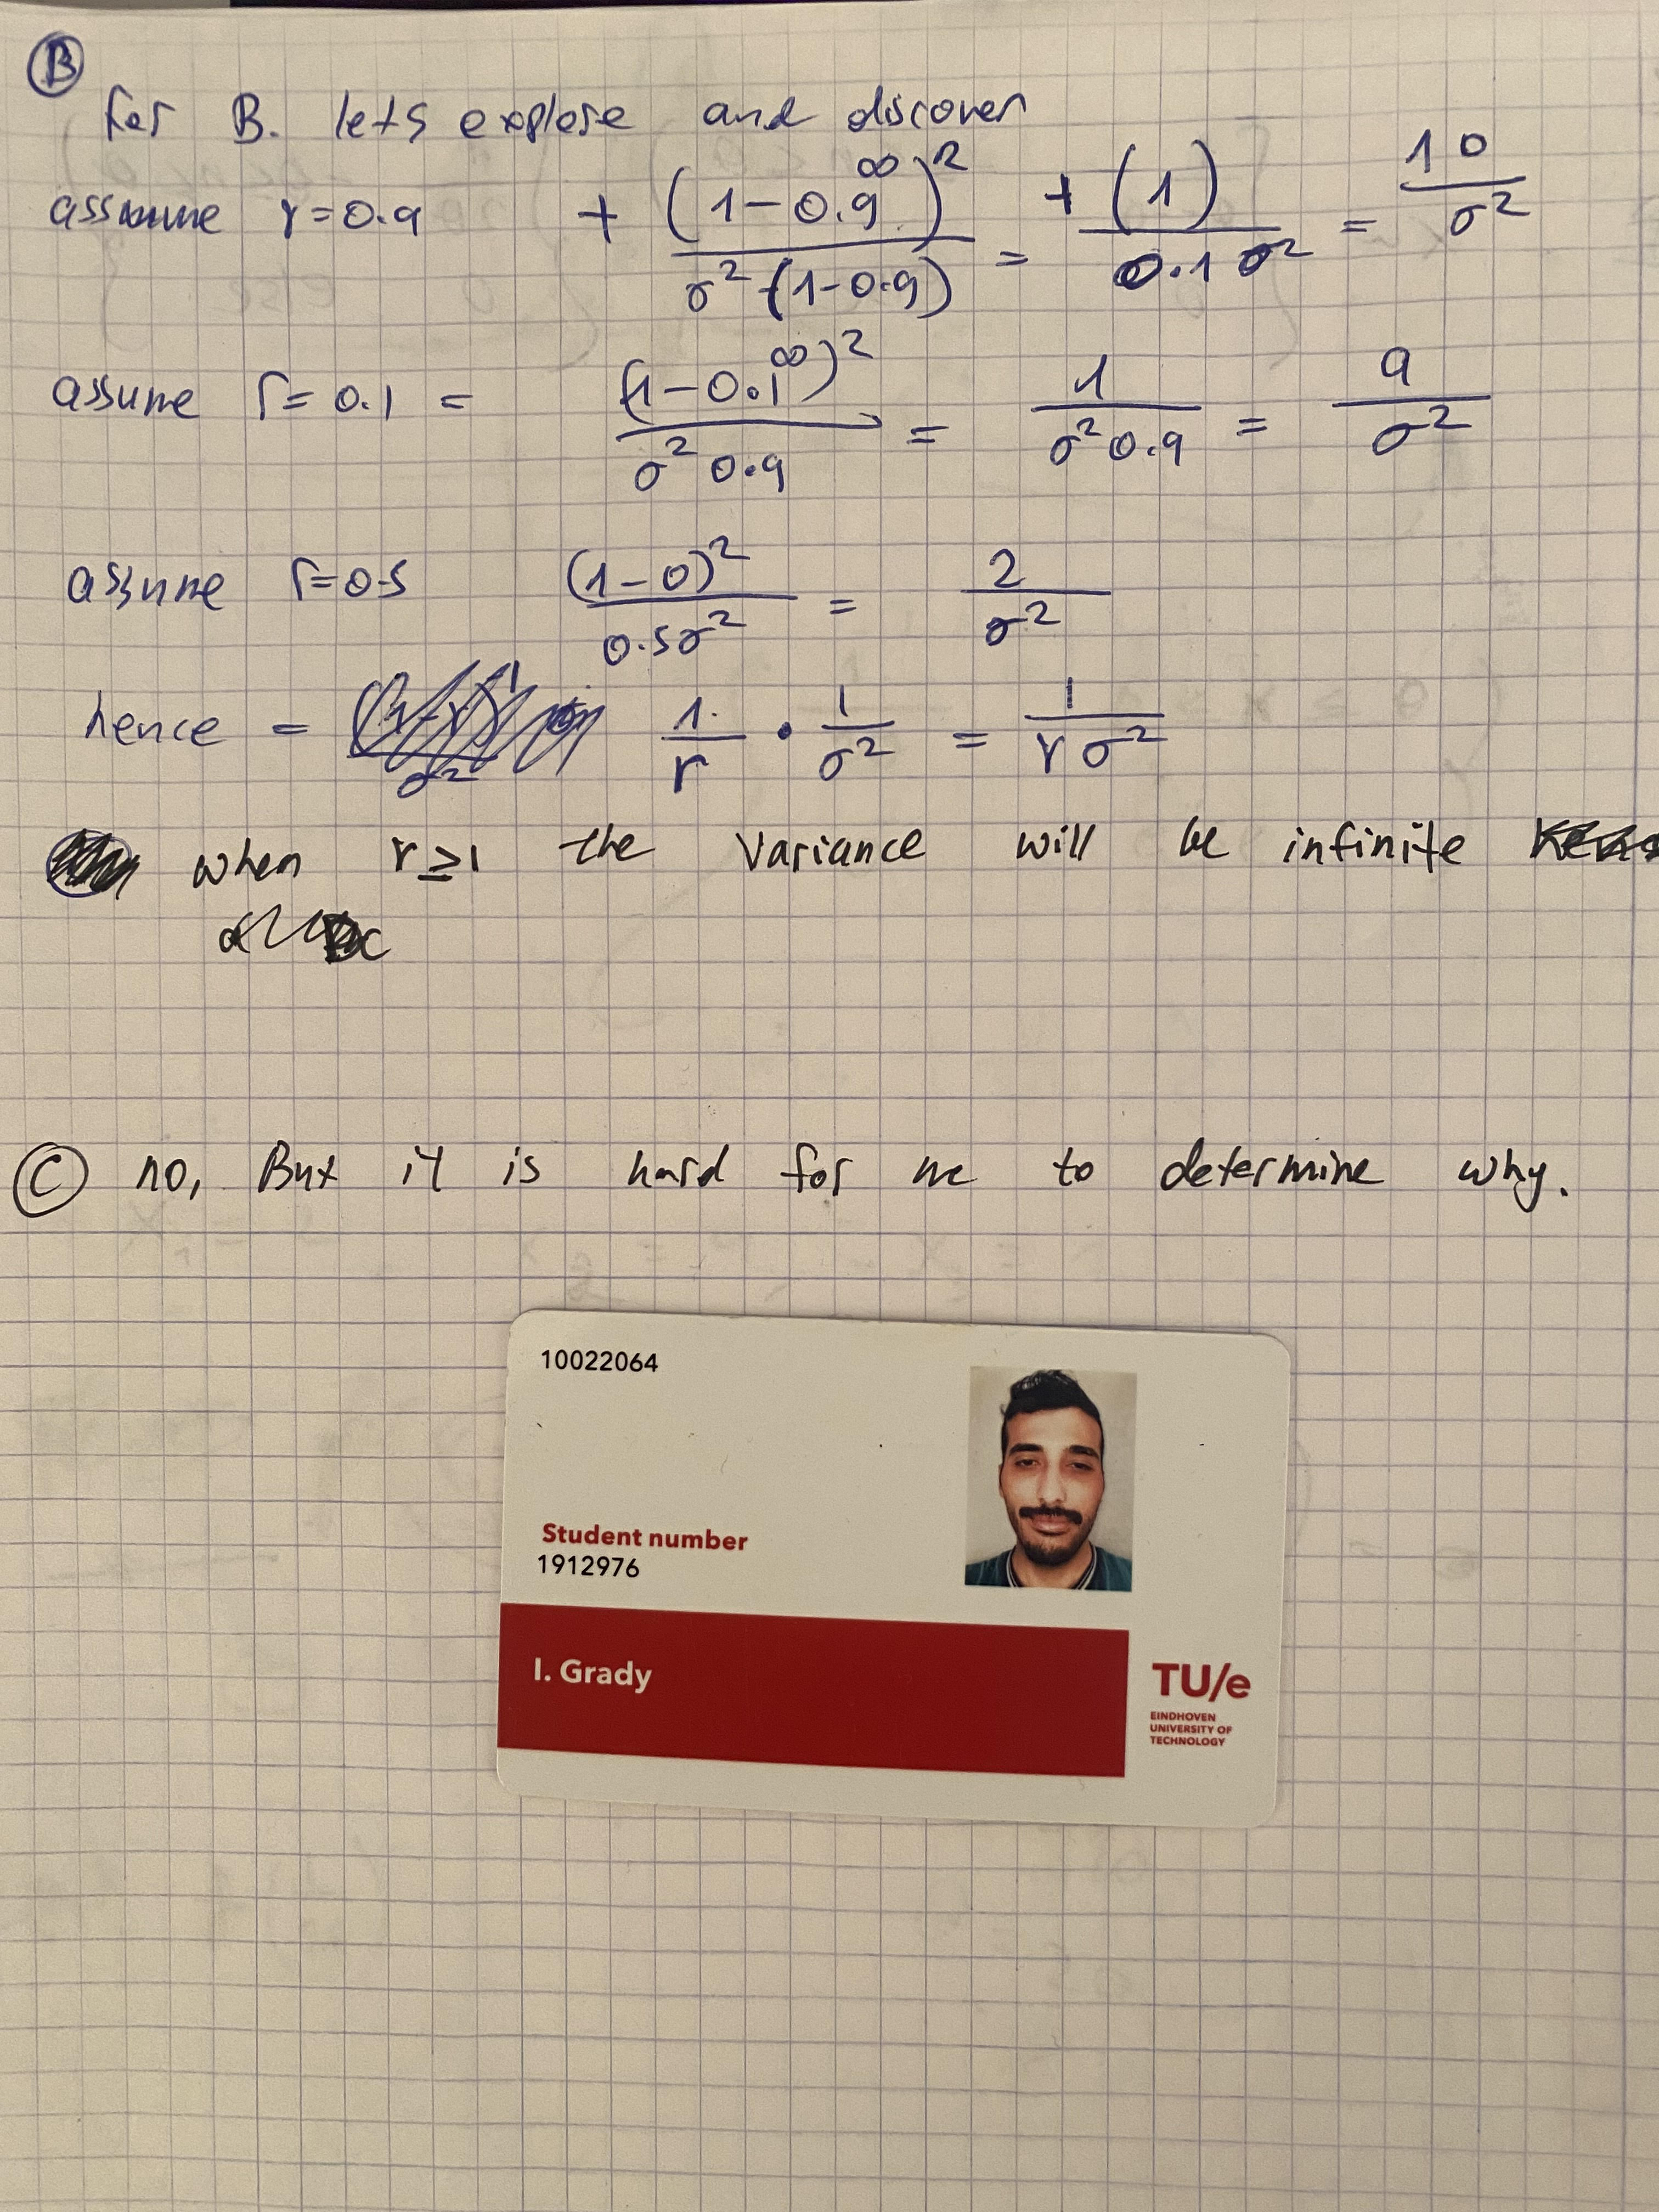 B
for B. lets explore and discover
assume r=0.9 + (1-0.9^∞)^2 / σ^2 (1-0.9) = + (1) / 0.1 σ^2 = 10 / σ^2
assume r=0.1 = (1-0.1^∞)^2 / σ^2 0.9 = 1 / σ^2 0.9 = 9 / σ^2
assume r=0.5 (1-0)^2 / 0.5σ^2 = 2 / σ^2
hence = 1 / r · 1 / σ^2 = 1 / r σ^2
when r≥1 the variance will be infinite
C no, But it is hard for me to determine why.
10022064
Student number
1912976
I. Grady
TU/e
EINDHOVEN
UNIVERSITY OF
TECHNOLOGY